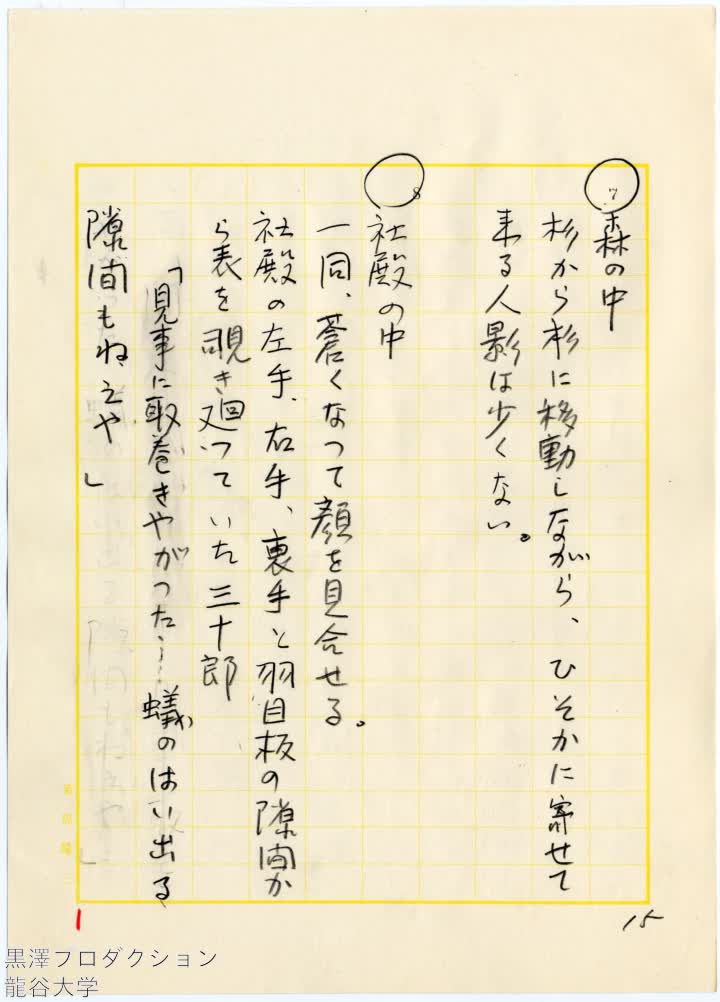 7
森の中
杉から杉に移動しながら、ひそかに寄せて
来る人影は少くない。
8
社殿の中
一同、蒼くなつて顔を見合せる。
社殿の左手、右手、裏手と羽目板の隙間か
ら表を覗き廻つていた三十郎
「見事に取巻きやがつた……蟻のはい出る
隙間もねえや」
15
1
黒澤プロダクション
龍谷大学